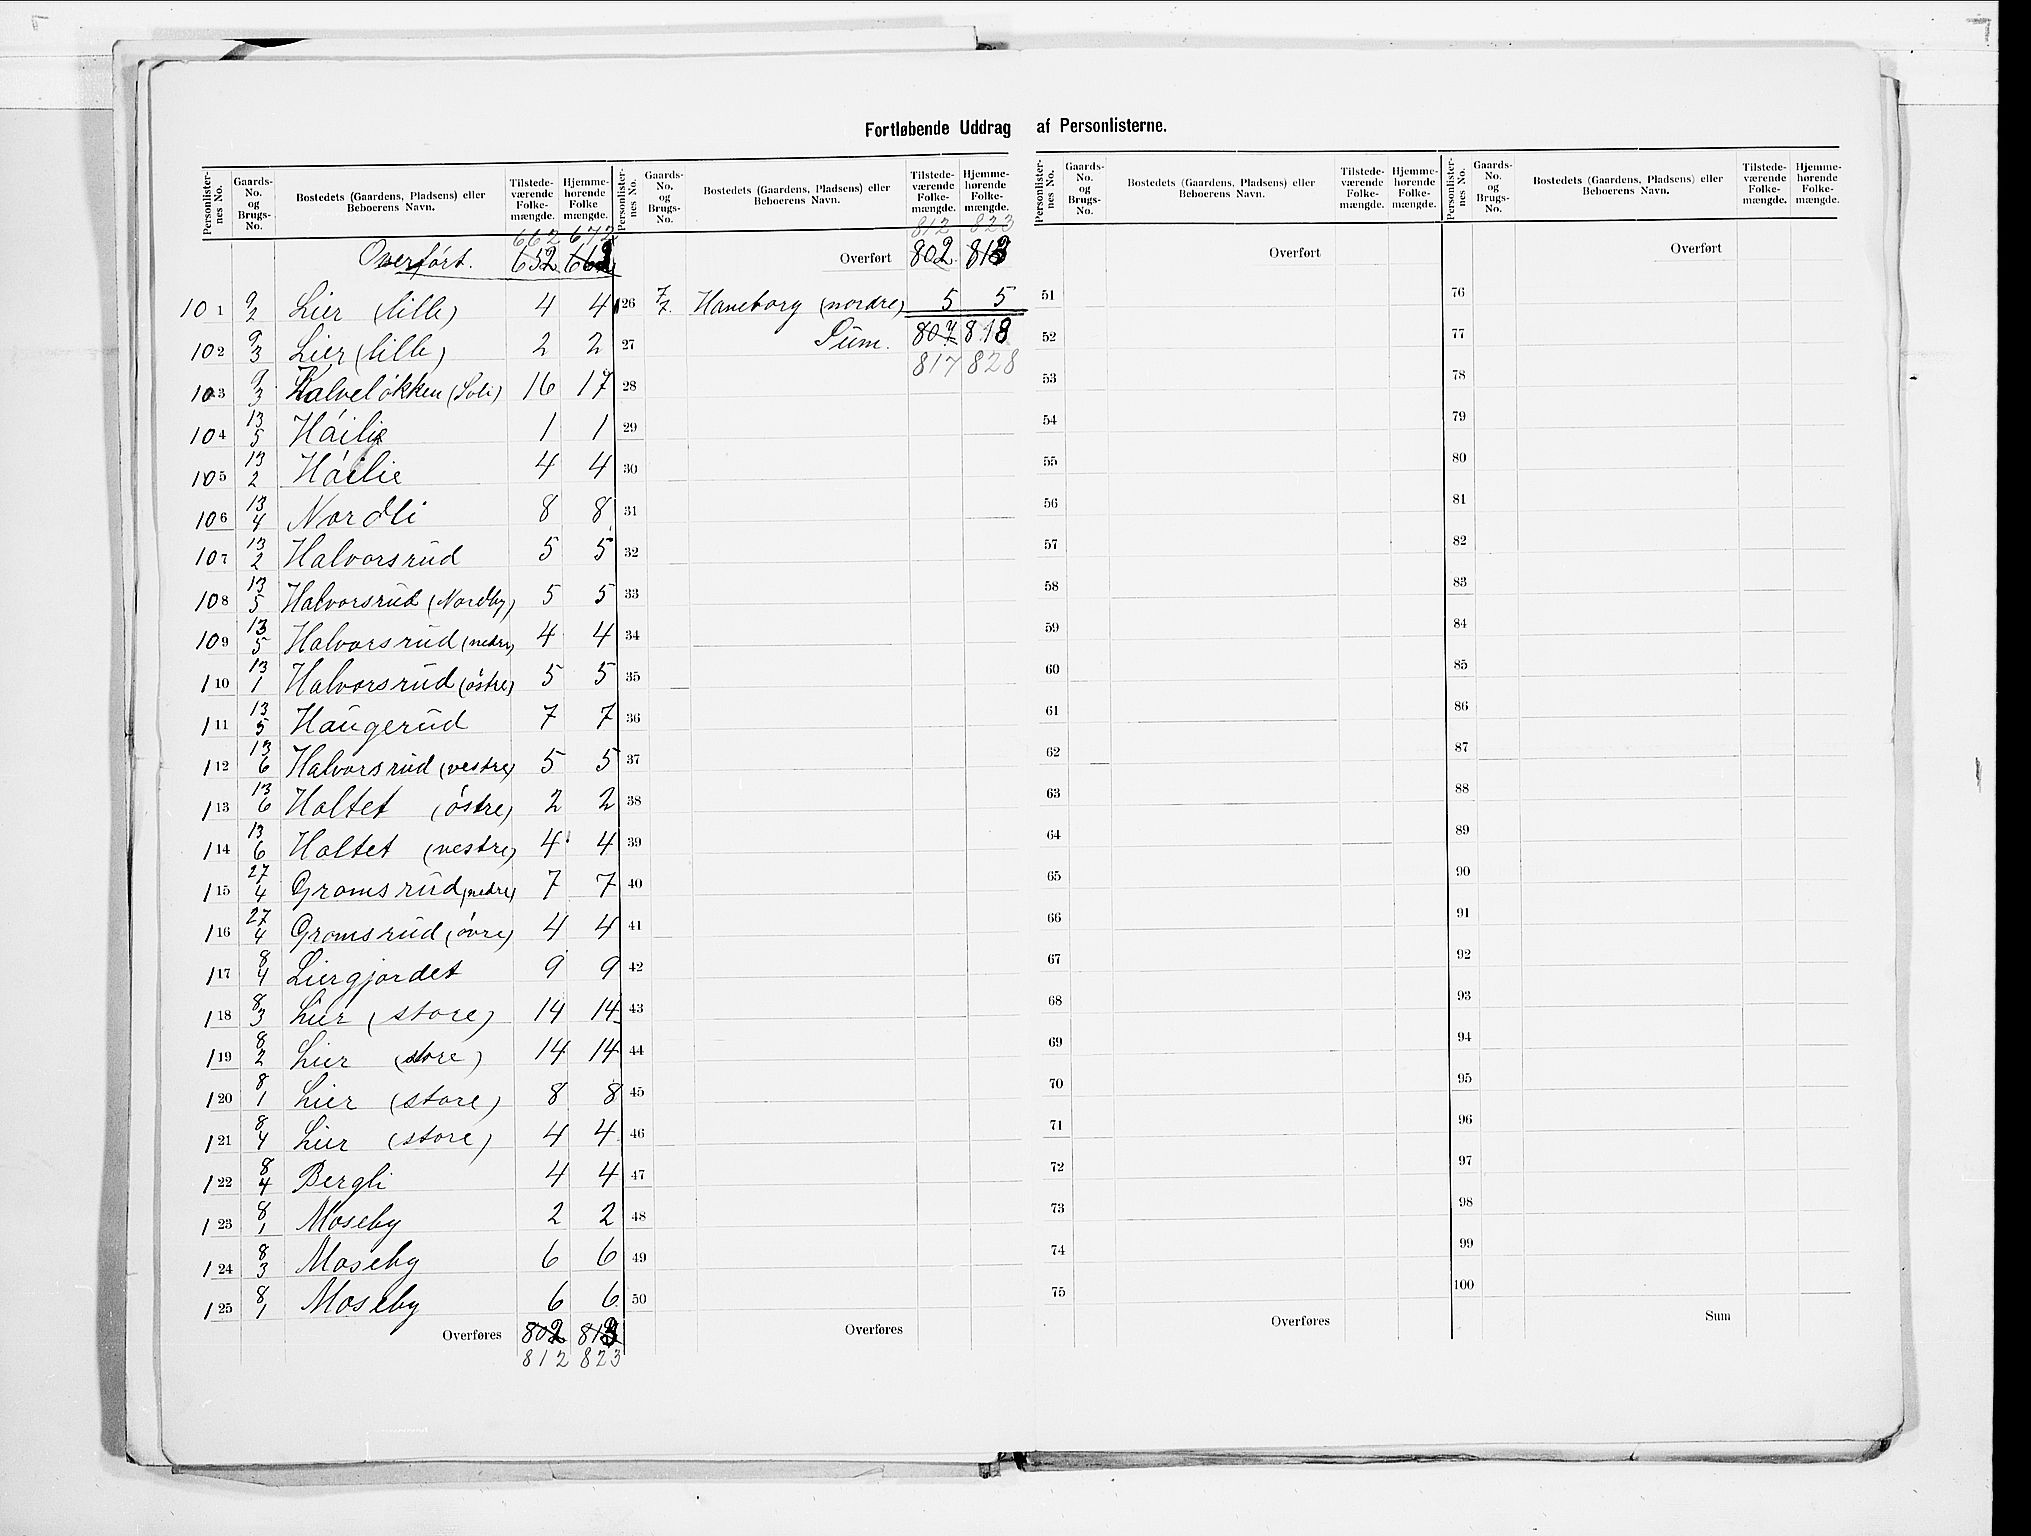 Fortløbende Uddrag af Personlisterne.
Personlister-nes No. | Gaards-No. og Brugs-No. | Bostedets (Gaardens, Pladsens) eller Beboerens Navn. | Tilstede-værende Folke-mængde. | Hjemme-hørende Folke mængde.
662 672
Overført. 652 663
101 9/2 Lier (lille) 4 4
102 9/3 Lier (lille) 2 2
103 9/3 Kalveløkken (Soli) 16 17
104 13/5 Høilie 1 1
105 13/2 Høilie 4 4
106 13/4 Nordli 8 8
107 13/2 Halvorsrud 5 5
108 13/5 Halvorsrud (Nordby) 5 5
109 13/5 Halvorsrud (nedre) 4 4
110 13/1 Halvorsrud (østre) 5 5
111 13/5 Haugerud 7 7
112 13/6 Halvorsrud (vestre) 5 5
113 13/6 Holtet (østre) 2 2
114 13/6 Holtet (vestre) 4 4
115 27/4 Gromsrud (nedre) 7 7
116 27/4 Gromsrud (øvre) 4 4
117 8/4 Liergjordet 9 9
118 8/3 Lier (store) 14 14
119 8/2 Lier (store) 14 14
120 8/1 Lier (store) 8 8
121 8/4 Lier (store) 4 4
122 8/4 Bergli 4 4
123 8/1 Moseby 2 2
124 8/3 Moseby 6 6
125 8/1 Moseby 6 6
Overføres 802 813
812 823
Personlister-nes No. | Gaards-No. og Brugs-No. | Bostedets (Gaardens, Pladsens) eller Beboerens Navn. | Tilstede-værende Folke-mængde. | Hjemme-hørende Folke-mængde.
812 823
Overført 802 813
126 7/7. Haneborg (nordre) 5 5
27 Sum. 807 818
817 828
28
29
30
31
32
33
34
35
36
37
38
39
40
41
42
43
44
45
46
47
48
49
50
Overføres
Personlister-nes No. | Gaards-No. og Brugs-No. | Bostedets (Gaardens, Pladsens) eller Beboerens Navn. | Tilstede-værende Folke-mængde. | Hjemme-hørende Folke-mængde.
Overført
51
52
53
54
55
56
57
58
59
60
61
62
63
64
65
66
67
68
69
70
71
72
73
74
75
Overføres
Personlister-nes No. | Gaards-No. og Brugs-No. | Bostedets (Gaardens, Pladsens) eller Beboerens Navn. | Tilstede-værende Folke-mængde. | Hjemme-hørende Folke-mængde.
Overført
76
77
78
79
80
81
82
83
84
85
86
87
88
89
90
91
92
93
94
95
96
97
98
99
100
Sum